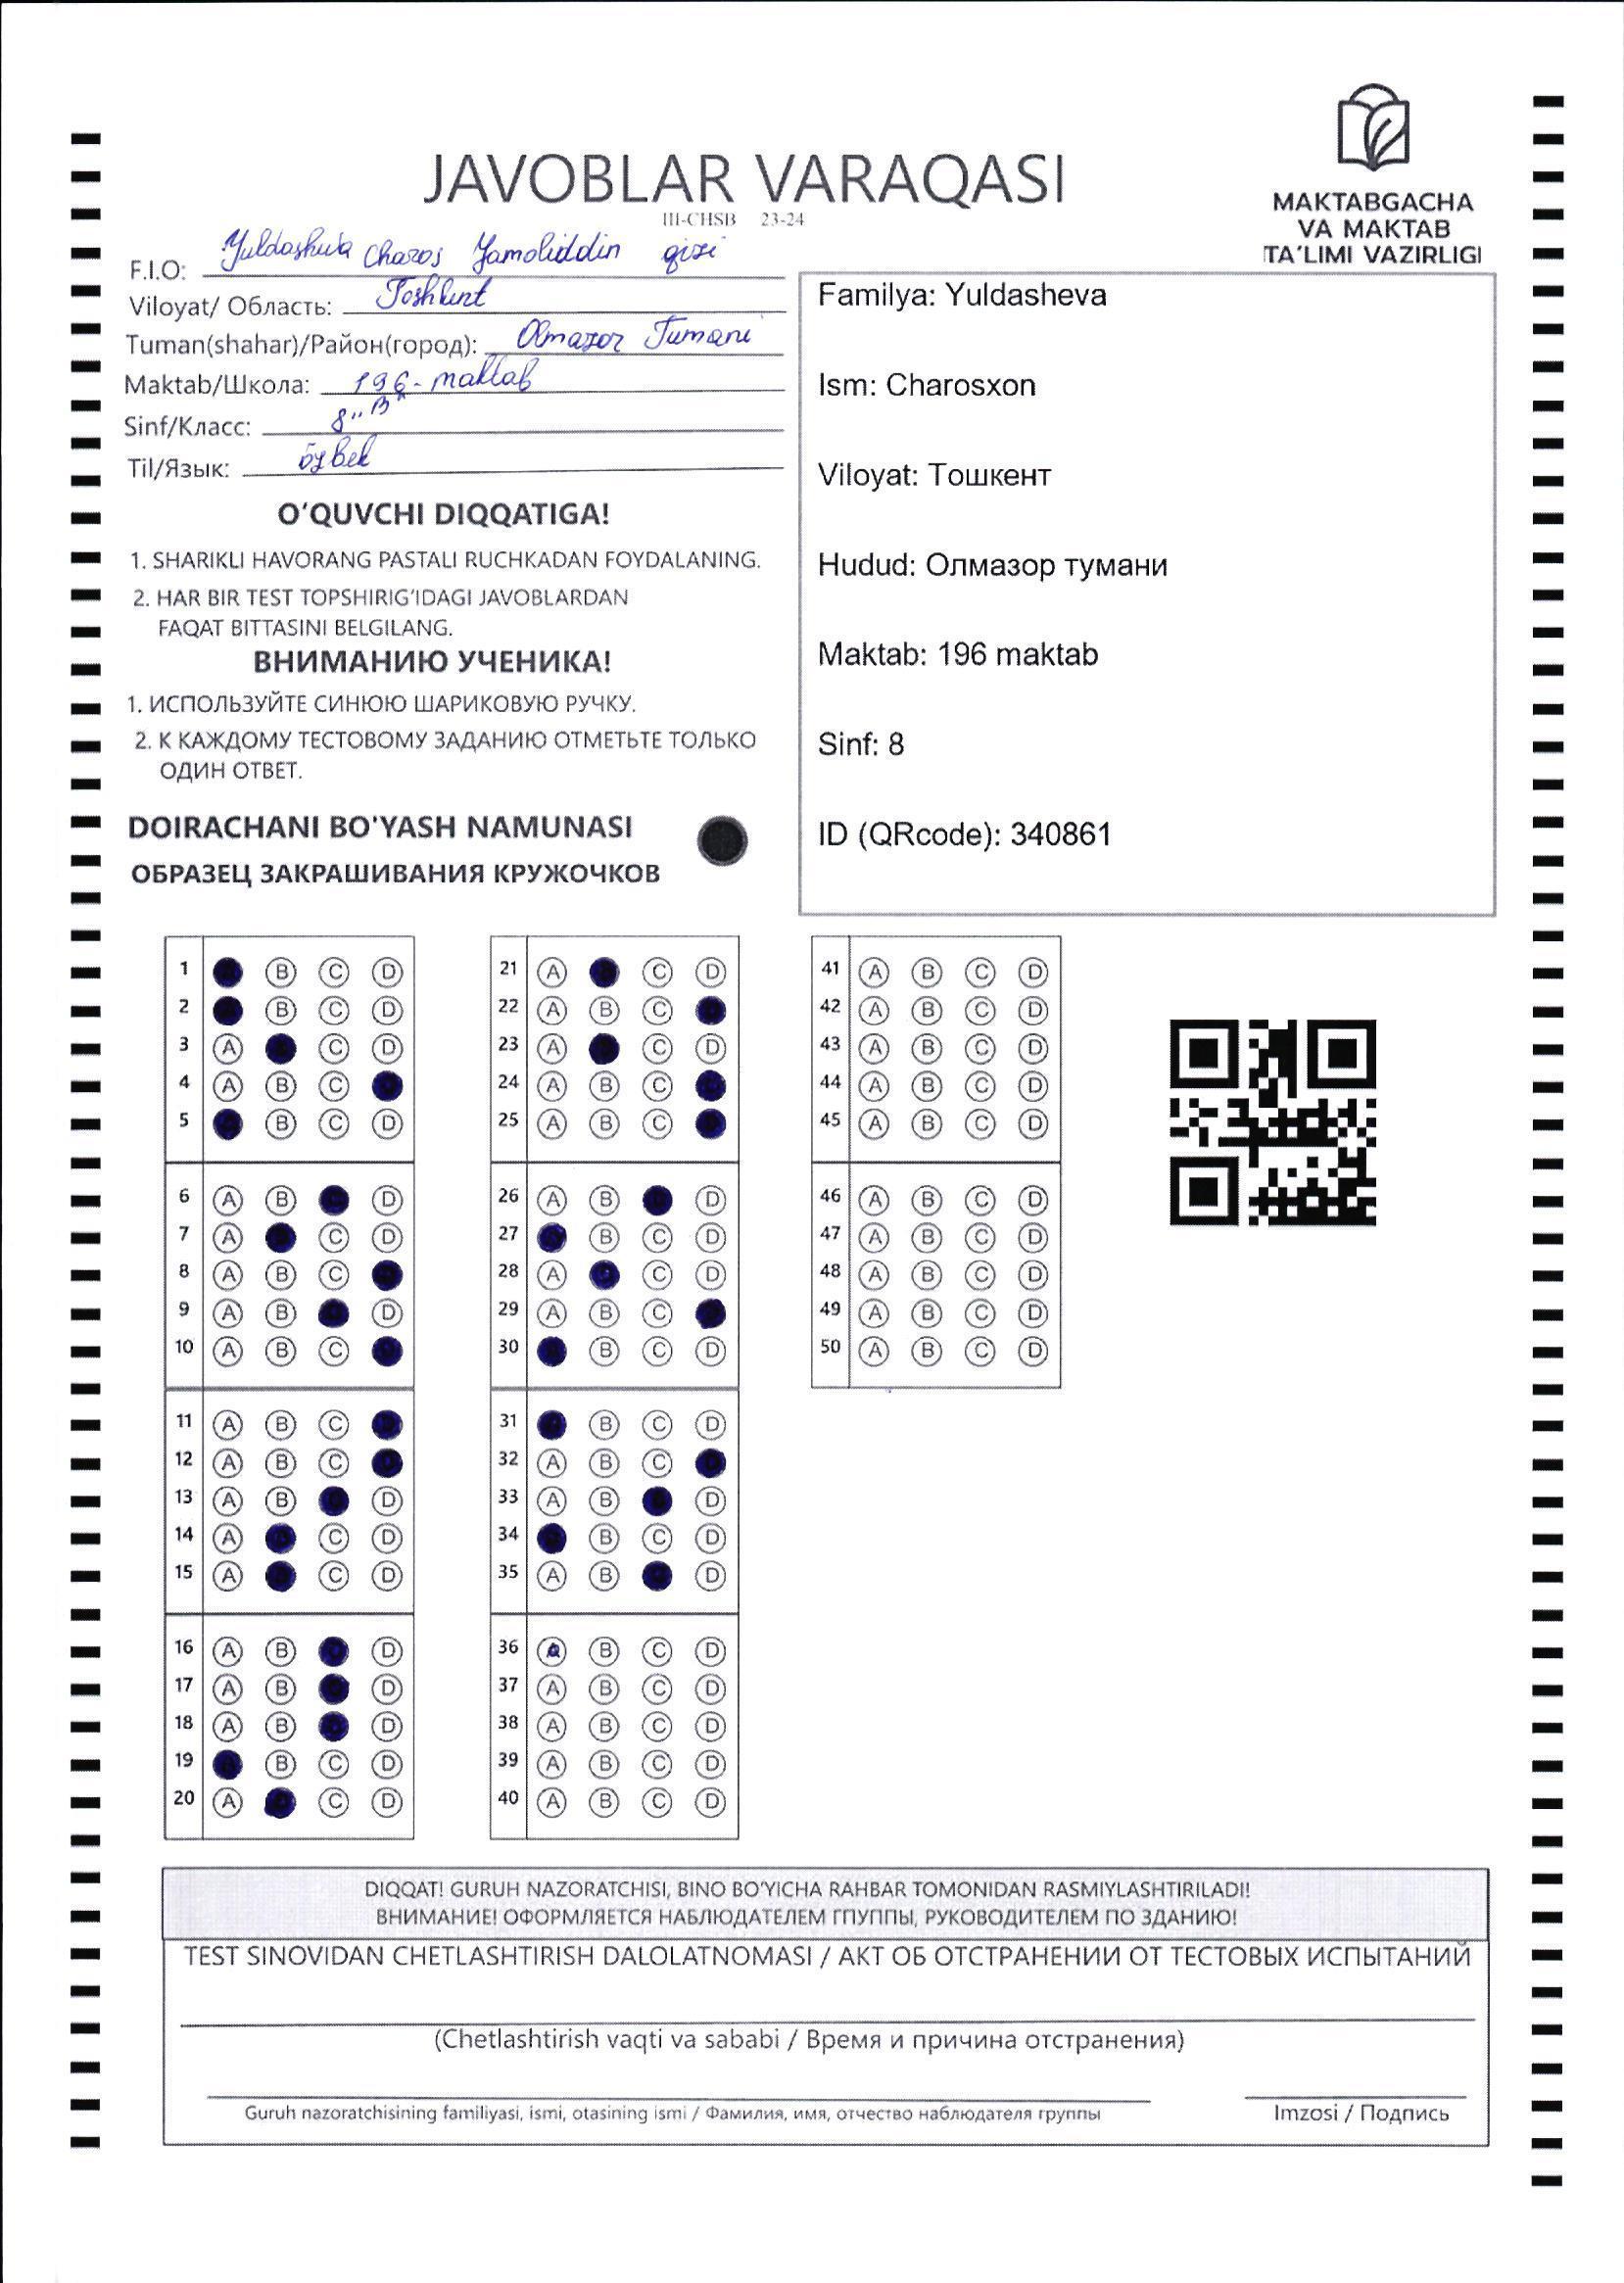 MAKTABGACHA
VA MAKTAB
TA'LIMI VAZIRLIGI
JAVOBLAR VARAQASI
III-CHSB 23-24
F.I.O: Yuldasheva Charos Jamoliddin qizi
Viloyat/ Область: Toshkent
Tuman(shahar)/Район(город): Olmazor Tumani
Maktab/Школа: 196-maktab
Sinf/Класс: 8 "B"
Til/Язык: o'zbek
Familya: Yuldasheva
Ism: Charosxon
Viloyat: Тошкент
Hudud: Олмазор тумани
Maktab: 196 maktab
Sinf: 8
ID (QRcode): 340861
O'QUVCHI DIQQATIGA!
1. SHARIKLI HAVORANG PASTALI RUCHKADAN FOYDALANING.
2. HAR BIR TEST TOPSHIRIG'IDAGI JAVOBLARDAN
FAQAT BITTASINI BELGILANG.
ВНИМАНИЮ УЧЕНИКА!
1. ИСПОЛЬЗУЙТЕ СИНЮЮ ШАРИКОВУЮ РУЧКУ.
2. К КАЖДОМУ ТЕСТОВОМУ ЗАДАНИЮ ОТМЕТЬТЕ ТОЛЬКО
ОДИН ОТВЕТ.
DOIRACHANI BO'YASH NAMUNASI
ОБРАЗЕЦ ЗАКРАШИВАНИЯ КРУЖОЧКОВ
1 B C D
2 B C D
3 A C D
4 A B C
5 B C D
6 A B D
7 A C D
8 A B C
9 A B D
10 A B C
11 A B C
12 A B C
13 A B D
14 A C D
15 A C D
16 A B D
17 A B D
18 A B D
19 B C D
20 A C D
21 A C D
22 A B C
23 A C D
24 A B C
25 A B C
26 A B D
27 B C D
28 A C D
29 A B C
30 B C D
31 B C D
32 A B C
33 A B D
34 B C D
35 A B D
36 A B C D
37 A B C D
38 A B C D
39 A B C D
40 A B C D
41 A B C D
42 A B C D
43 A B C D
44 A B C D
45 A B C D
46 A B C D
47 A B C D
48 A B C D
49 A B C D
50 A B C D
DIQQAT! GURUH NAZORATCHISI, BINO BO'YICHA RAHBAR TOMONIDAN RASMIYLASHTIRILADI!
ВНИМАНИЕ! ОФОРМЛЯЕТСЯ НАБЛЮДАТЕЛЕМ ГПУППЫ, РУКОВОДИТЕЛЕМ ПО ЗДАНИЮ!
TEST SINOVIDAN CHETLASHTIRISH DALOLATNOMASI / АКТ ОБ ОТСТРАНЕНИИ ОТ ТЕСТОВЫХ ИСПЫТАНИЙ
(Chetlashtirish vaqti va sababi / Время и причина отстранения)
Guruh nazoratchisining familiyasi, ismi, otasining ismi / Фамилия, имя, отчество наблюдателя группы
Imzosi / Подпись